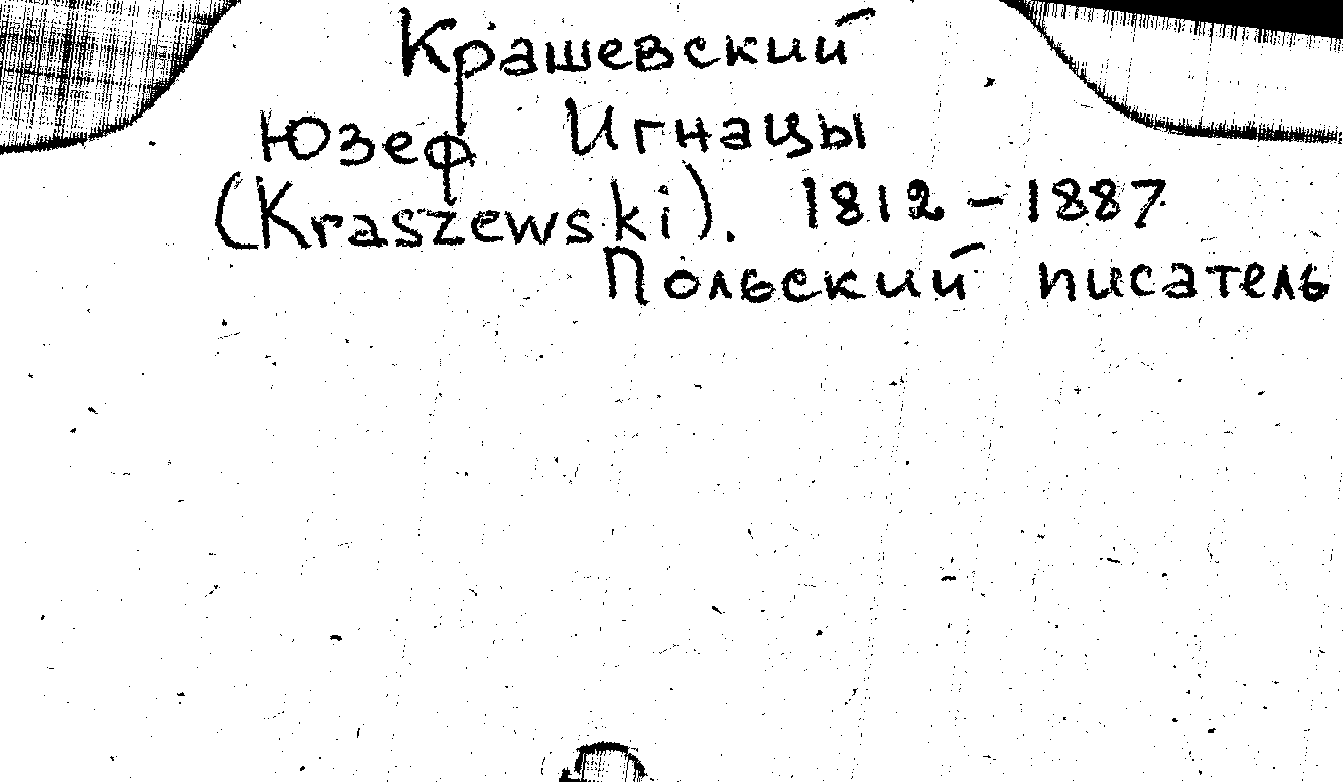 Крашевский
Юзеф Игнацы
(Kraszewski). 1812-1887
Польский писатель